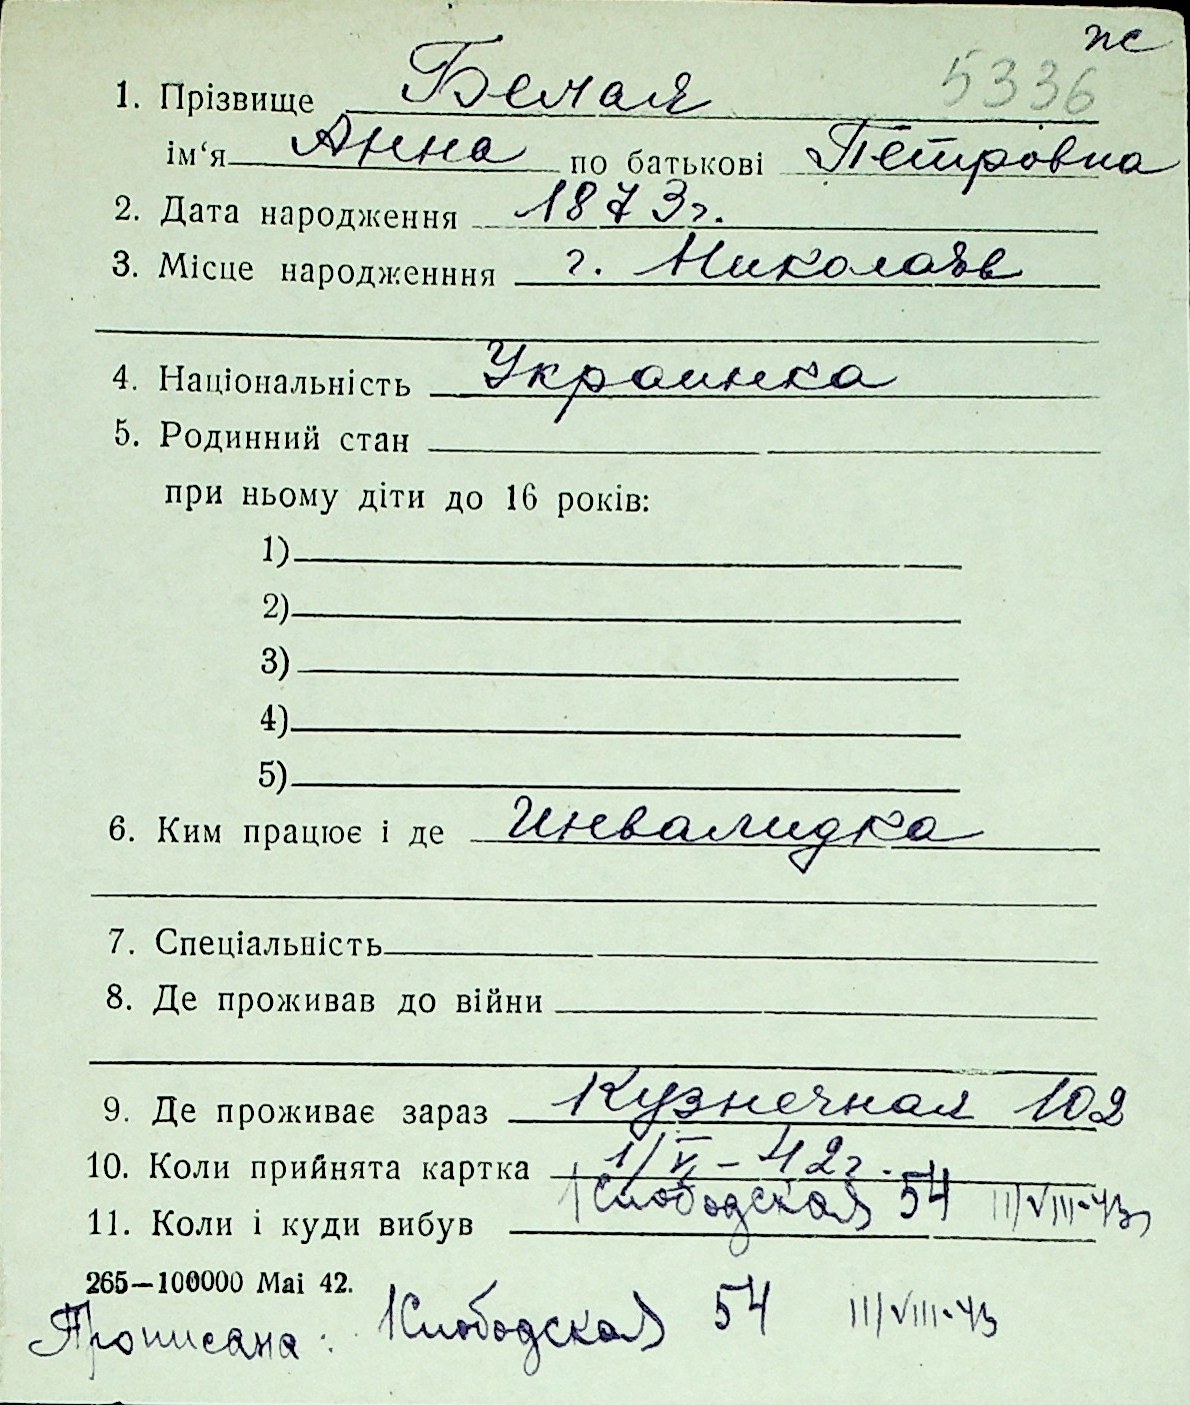 ж
5336
1. Прізвище Белая
ім‘я Анна по батькові Петровна
2. Дата народження 1873г.
3. Місце народженння г. Николаев
4. Національність Украинка
5. Родинний стан
при ньому діти до 16 років:
1)
2)
3)
4)
5)
6. Ким працює і де Инвалидка
7. Спеціальність
8. Де проживав до війни
9. Де проживає зараз Кузнечная 102
10. Коли прийнята картка 1/V – 42г.
11. Коли і куди вибув 1 Слободская 54 11/VIII-43
265—100000 Mai 42.
Прописана: 1 Слободская 54 11/VIII-43